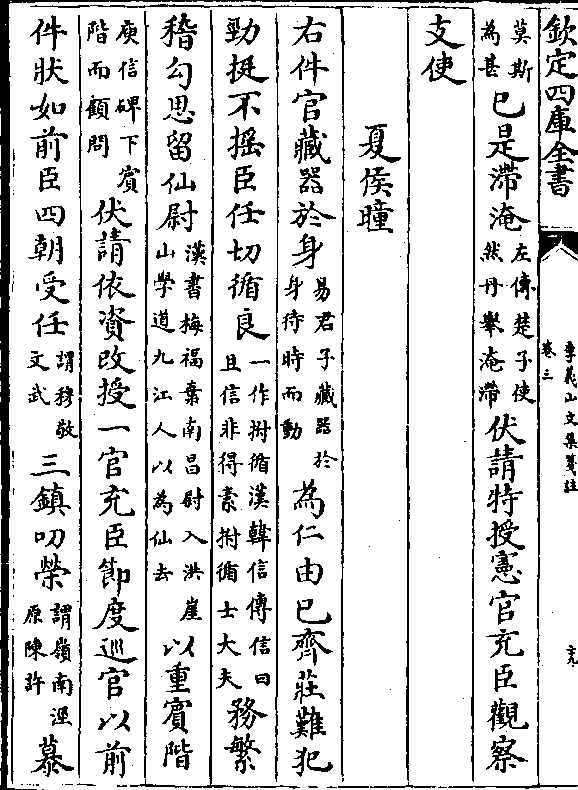 欽定四庫全書
李義山文集箋註
卷三
莫斯為甚已是滯淹左傳楚子使然丹舉淹滯伏請特授憲官充臣觀察
支使
夏侯曈
右件官藏器於身易君子藏器於身待時而動為仁由已齊莊難犯
勁挺不搖臣任切循良一作拊循漢韓信傳信曰且信非得素拊循士大夫務繁
稽勾思留仙尉漢書梅福棄南昌尉入洪崖山學道九江人以為仙去以重賓階
庾信碑下賓階而顧問伏請依資改授一官充臣節度巡官以前
件狀如前臣四朝受任謂穆敬文武三鎮叨榮謂嶺南涇原陳許慕